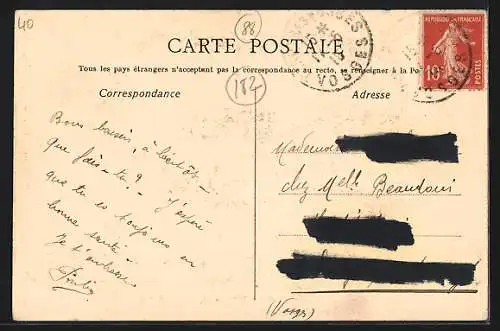 40
88
CARTE POSTALE
Tous les pays étrangers n'acceptent pas la correspondance au recto, se renseigner à la Po
182
Correspondance
Adresse
REPUBLIQUE FRANÇAISE
10
POSTES
VOSGES
Bons baisers, à bientôt.
Que fais-tu? J'espère
que tu es toujours en
bonne santé.
Je t'embrasse
Mademoiselle
chez Melle Beaudoin
(Vosges)